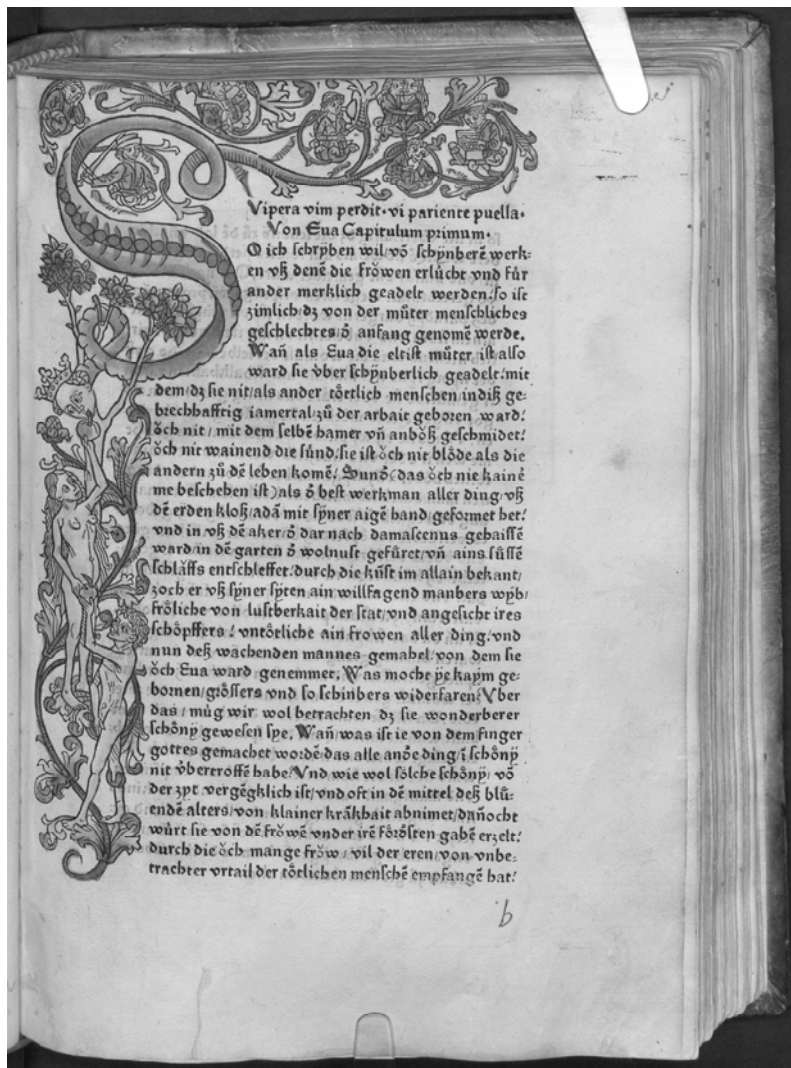 Vipera vim perdit·vi pariente puella·
Von Eua Capitulum primum·
O ich schrẏben wil/võ schẏnberẽ werk⸗
en vß denẽ die frowen erlúcht vnd fúr
ander merklich geadelt werden/so ist
zimlich/dz von der můter menschliches
geschlechtes/ð anfang genomẽ werde.
Wañ als Eua die eltist můter ist/also
ward sie v̊ber schẏnberlich geadelt/mit
dem/dz sie nit/als ander to̊tlich menschen/indiß ge⸗
brechhafftig iamertal/zů der arbait geboren ward/
o̊ch nit/mit dem selbẽ hamer vñ anboß geschmidet/
o̊ch nit wainend die súnd/sie ist o̊ch nit blo̊de als die
andern zů dẽ leben komẽ/Sunð(das o̊ch nie kainẽ
me beschehen ist)als ð best werkman aller ding/vß
dẽ erden kloß/adã mit sẏner aigẽ hand/geformet het/
vnd in vß dẽ aker/ð dar nach damascenus gehaissẽ
ward/in dẽ garten ð wolnust gefu̇ret/vñ ains sůssẽ
schlaffs entschleffet/durch die kúst im allain bekant/
zoch er vß sẏner sẏten ain willfagend manbers wẏb/
fro̊liche von lustberkait der stat/vnd angesicht ires
scho̊pffers/vnto̊tliche ain frowen aller ding/vnd
nun deß wachenden mannes gemahel/von dem sie
o̊ch Eua ward genemmet. Was mocht ẏe kaẏm ge⸗
bornen/gro̊ssers vnd so schinbers widerfaren/Vber
das/múg wir wol betrachten dz sie wonderberer
scho̊nẏ gewesen sẏe. Wañ was ist ie von dem finger
gottes gemachet wordẽ/das alle anðe ding/ĩ scho̊nẏ
nit v̊bertroffẽ habe/Vnd wie wol so̊lche scho̊nẏ/võ
der zẏt vergẽgklich ist/vnd oft in dẽ mittel deß blů⸗
endẽ alters/von klainer kra̋khait abnimet/dañocht
wúrt sie von dẽ fro̊wẽ vnder irẽ fo̊ro̊sten gabẽ erzelt/
durch die o̊ch mange fro̊w/vil der eren/von vnbe⸗
trachter vrtail der to̊tlichen menschẽ empfangẽ hat/
b